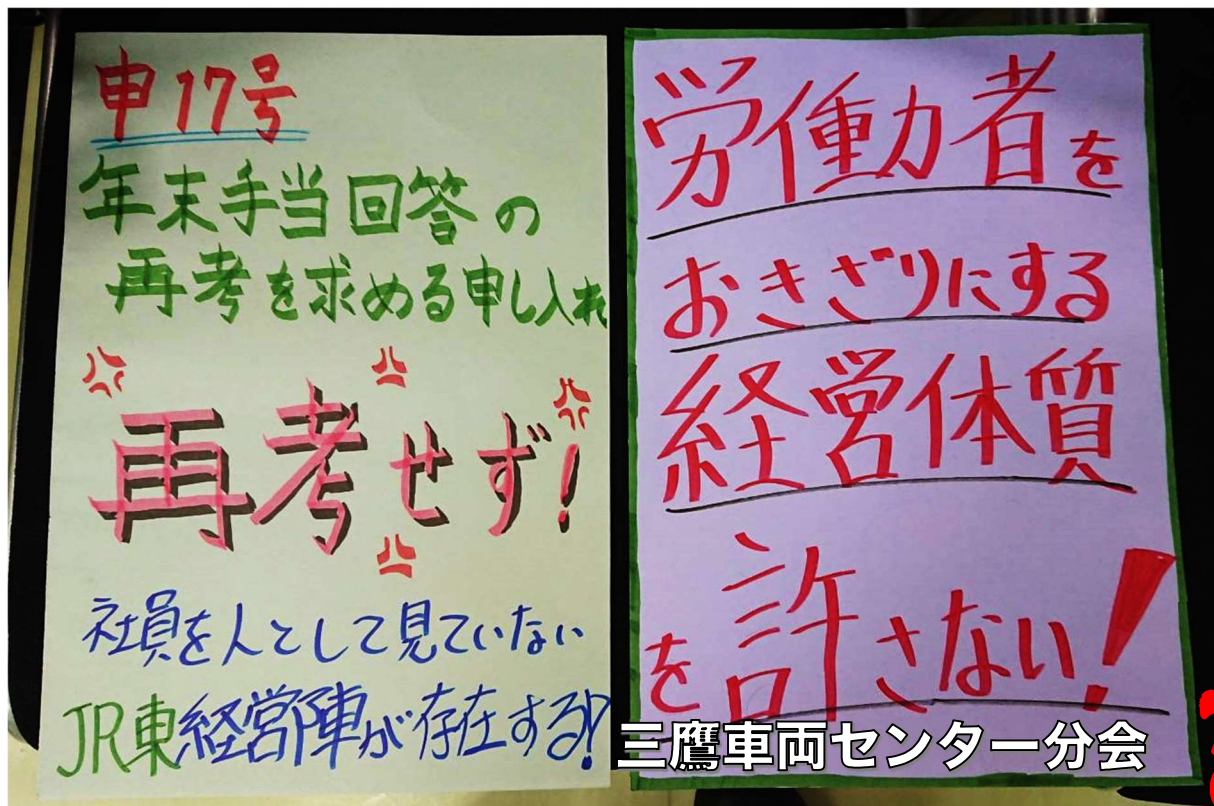 申17号
年末手当回答の
再考を求める申し入れ
再考せず!
社員を人として見ていない
JR東経営陣が存在する!?
労働者を
おきざりにする
経営体質
を許さない!
三鷹車両センター分会